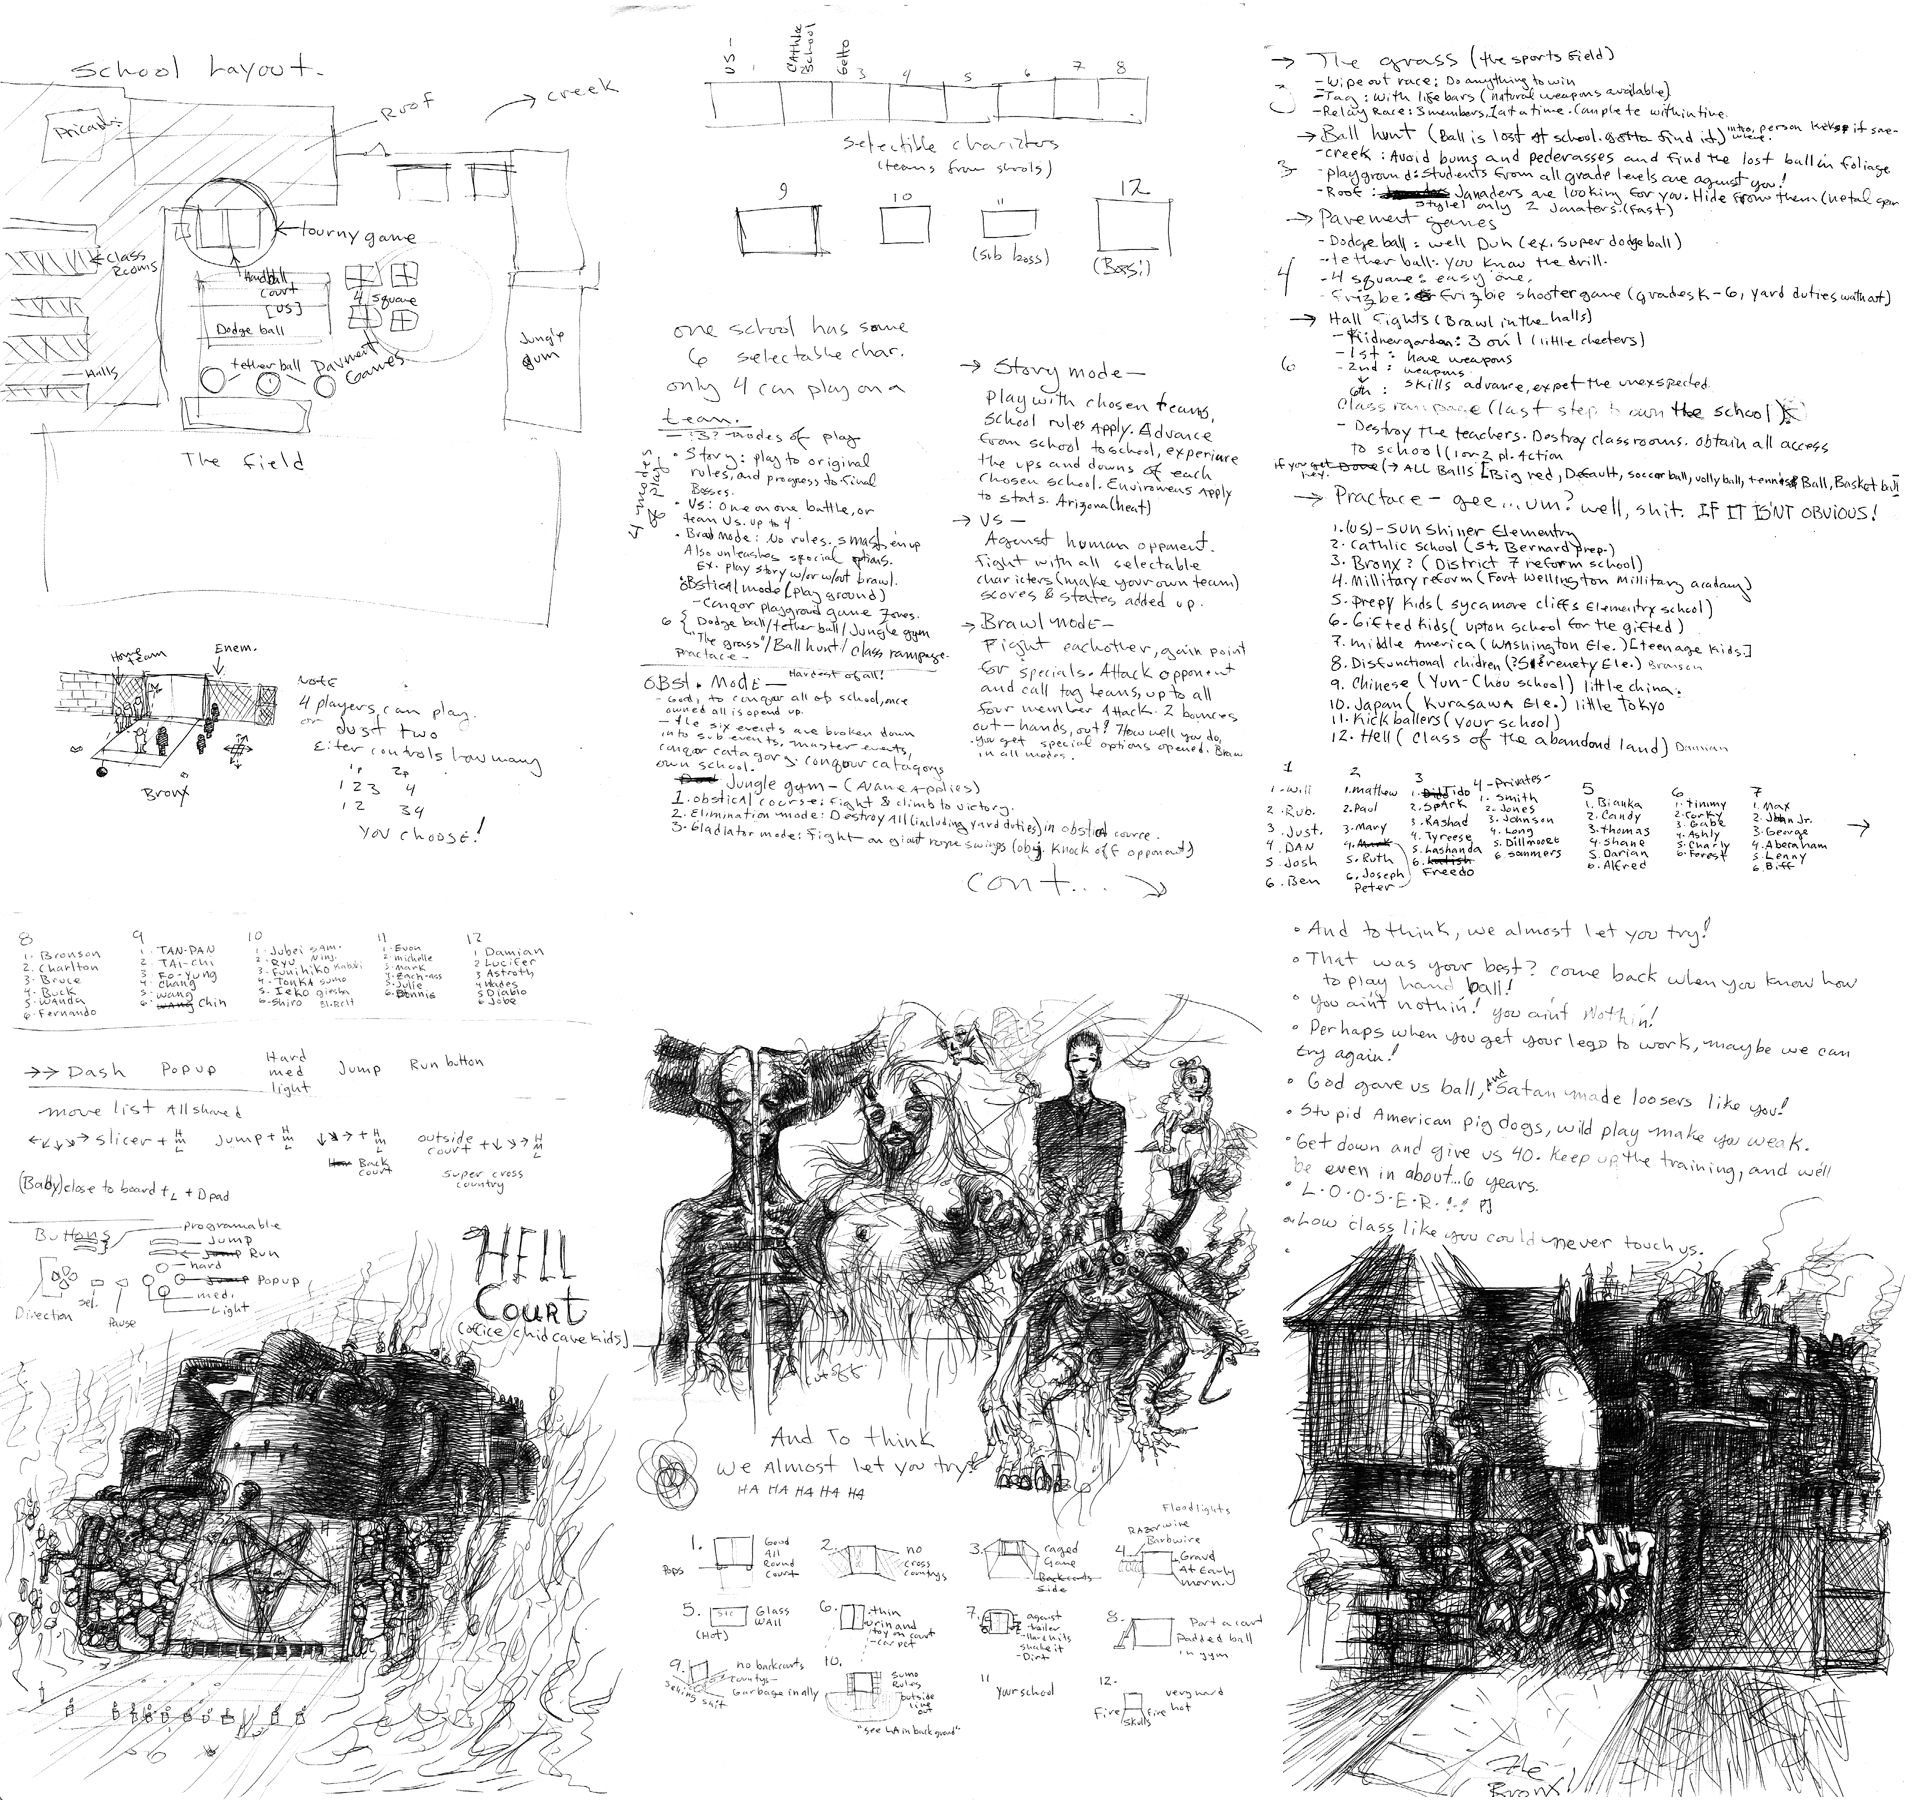 School Layout.
Roof
creek
tourny game
Class
Rooms
Handball
Court
[US]
4 square
Dodge ball
tetherball
Pavment
Games
Halls
Jungle
gym
The field
Home
team
Enem.
Bronx
Note
4 players can play.
or Just two
Eiter controls how many
1P 2P
1 2 3 4
1 2 3 4
You choose!
US -
Cathlic
School
Getto
3 4 5 6 7 8
selectible charicters
(teams from shools)
9 10 11 12
(sub boss)
(Boss!)
one school has some
6 selectable char.
only 4 can play on a
team.
-:3? modes of play
4 modes of play
• Story: play to original
rules, and progress to final
Bosses.
• Vs: One on one battle, or
team Vs. up to 4
• Brawl mode: No rules. smash em up
Also unleashes special options.
Ex. play story w/or w/out brawl.
• Obstical mode (play ground)
- Conqor playgrond game zones.
6 { Dodge ball/tether ball/Jungle gym
"The grass"/Ball hunt/class rampage.
Practace -
Obst. Mode - Hardest of all!
- Goal, to conqor all of school, once
owned all is opend up.
- The six events are broken down
into sub events, master events,
conqor catagory. conqour catagorys
own school.
Jungle gym - (Name Applies)
1. obstical course: Fight & climb to victory.
2. Elimination mode: Destroy All (including yard duties) in obstical cource.
3. Gladiator mode: Fight on giant rope swings (obj. Knock off opponent)
cont...
→ Story mode -
Play with chosen teams,
school rules apply. Advance
from school to school, experiance
the ups and downs of each
chosen school. Enviromens Apply
to stats. Arizona (heat)
→ VS -
Against human opponent.
Fight with all selectable
charicters (make your own team)
scores & states added up.
→ Brawl mode -
Fight eachother, gain point
for specials. Attack opponent
and call tag teams, up to all
four member Attack. 2 bounces
out - hands, out! How well you do,
you get special options opened. Brawl
in all modes.
→ The grass (the sports field)
- Wipe out race: Do anything to win
- Tag: With life bars (natural weapons available)
- Relay Race: 3 members, 1 at a time. Complete within time.
3
→ Ball hunt (Ball is lost at school. Gotta find it)
- creek: Avoid bums and pederasses and find the lost ball in foliage
- playground: Students from all grade levels are against you!
- Roof: Janaders are looking for you. Hide from them (metal gear
style) only 2 Janaters (fast)
3
→ Pavement games
- Dodge ball: well Duh (ex. super dodge ball)
- tether ball: you know the drill.
- 4 square: easy one.
- Frizbe: Frizbie shooter game (grades K-6, yard duties with art)
4
→ Hall fights (Brawl in the halls)
- Kidnergarden: 3 on 1 (little cheeters)
- 1st: have weapons
- 2nd: weapons
6th: skills advance, expet the unexspected.
6
Class rampage (last step to own the school)
- Destroy the teachers. Destroy classrooms. obtain all access
to school (1 or 2 pl. Action
(→ ALL Balls [Big red, Default, soccor ball, volly ball, tennis Ball, Basket ball]
→ Practace - gee...um? well, shit. IF IT ISN'T OBVIOUS!
1. (us) - Sun Shiner Elementry
2. Cathlic school (St. Bernard prep.)
3. Bronx? (District 7 reform school)
4. Millitary reform (Fort Wellington Millitary acadamy)
5. Prepy Kids (sycamore cliffs Elementry school)
6. Gifted Kids (upton school for the gifted)
7. middle America (Washington Ele.) [teenage kids.]
8. Disfunctional chidren (?Serenety Ele.) Branson
9. Chinese (Yun-Chou school) little china.
10. Japan (Kurasawa Ele.) little Tokyo
11. Kick ballers (your school)
12. Hell (class of the abandond land) Damian
1
1. Will
2. Rub.
3. Just.
4. DAN
5. Josh
6. Ben
2
1. mathew
2. Paul
3. Mary
5. Ruth
6. Joseph
Peter
3
1. Tido
2. Spark
3. RAshad
4. Tyreese
5. Lashanda
6. Freedo
4 - Privates -
1. Smith
2. Jones
3. Johnson
4. Long
5. Dillmoret
6. sommers
5
1. Bianka
2. Candy
3. thomas
4. Shane
5. Darian
6. Alfred
6
1. timmy
2. Corky
3. Gabe
4. Ashly
5. Charly
6. Forest
7
1. Max
2. John Jr.
3. George
4. Aberaham
5. Lenny
6. Biff
8
1. Bronson
2. Charlton
3. Bruce
4. Buck
5. Wanda
6. Fernando
9
1. TAN-PAN
2. TAI-Chi
3. Fo-Yung
4. Chang
5. Wang
6. Chin
10
1. Jubei sam.
2. Ryu Ninj.
3. Funihiko Kabuki
4. Tonka sumo
5. Ieko giesha
6. Shiro Bl. Belt
11
1. Evon
2. michelle
3. mark
4. Zach-ass
5. Julie
6. Dennis
12
1. Damian
2. Lucifer
3. Astroth
4. Hades
5. Diablo
6. Jobe
→→ Dash Popup Hard med light Jump Run button
move list All shared
slicer + H M L Jump + H M L + H M L outside court + H M L
Back court
super cross country
(Baby) close to board + L + Dpad
Buttons
programable
Jump
Run
hard
Popup
med.
Light
Direction
sel.
Pause
HELL
Court
And To think
we Almost let you try!
HA HA HA HA HA
1. Good All Round Court
Pops
2. no cross countrys
3. caged Game
side
Floodlights
Razorwire
Barbwire
4. Gravd At Early morn.
5. Glass WAll
(Hot)
6. thin
urin and
toy on court
- carpet
7. against trailer
- Hard hits shake it
- Dirt
8. Port a court
padded ball
in gym
9. no backcorts
countys -
Garbage in ally
selling shit
10. Sumo Rules
outside line out
"see LA in back ground"
11 your school
12. very hard
Fire fire hot
skulls
• And to think, we almost let you try!
• That was your best? come back when you know how
to play hand ball!
• you ain't nothin! you ain't Nothin!
• Perhaps when you get your legs to work, maybe we can
try again!
• God gave us ball, and Satan made loosers like you!
• Stupid American pig dogs, wild play make you weak.
• Get down and give us 40. Keep up the training, and we'll
be even in about...6 years.
• L.O.O.S.E.R.!!
• Low class like you could never touch us.
The
Bronx!